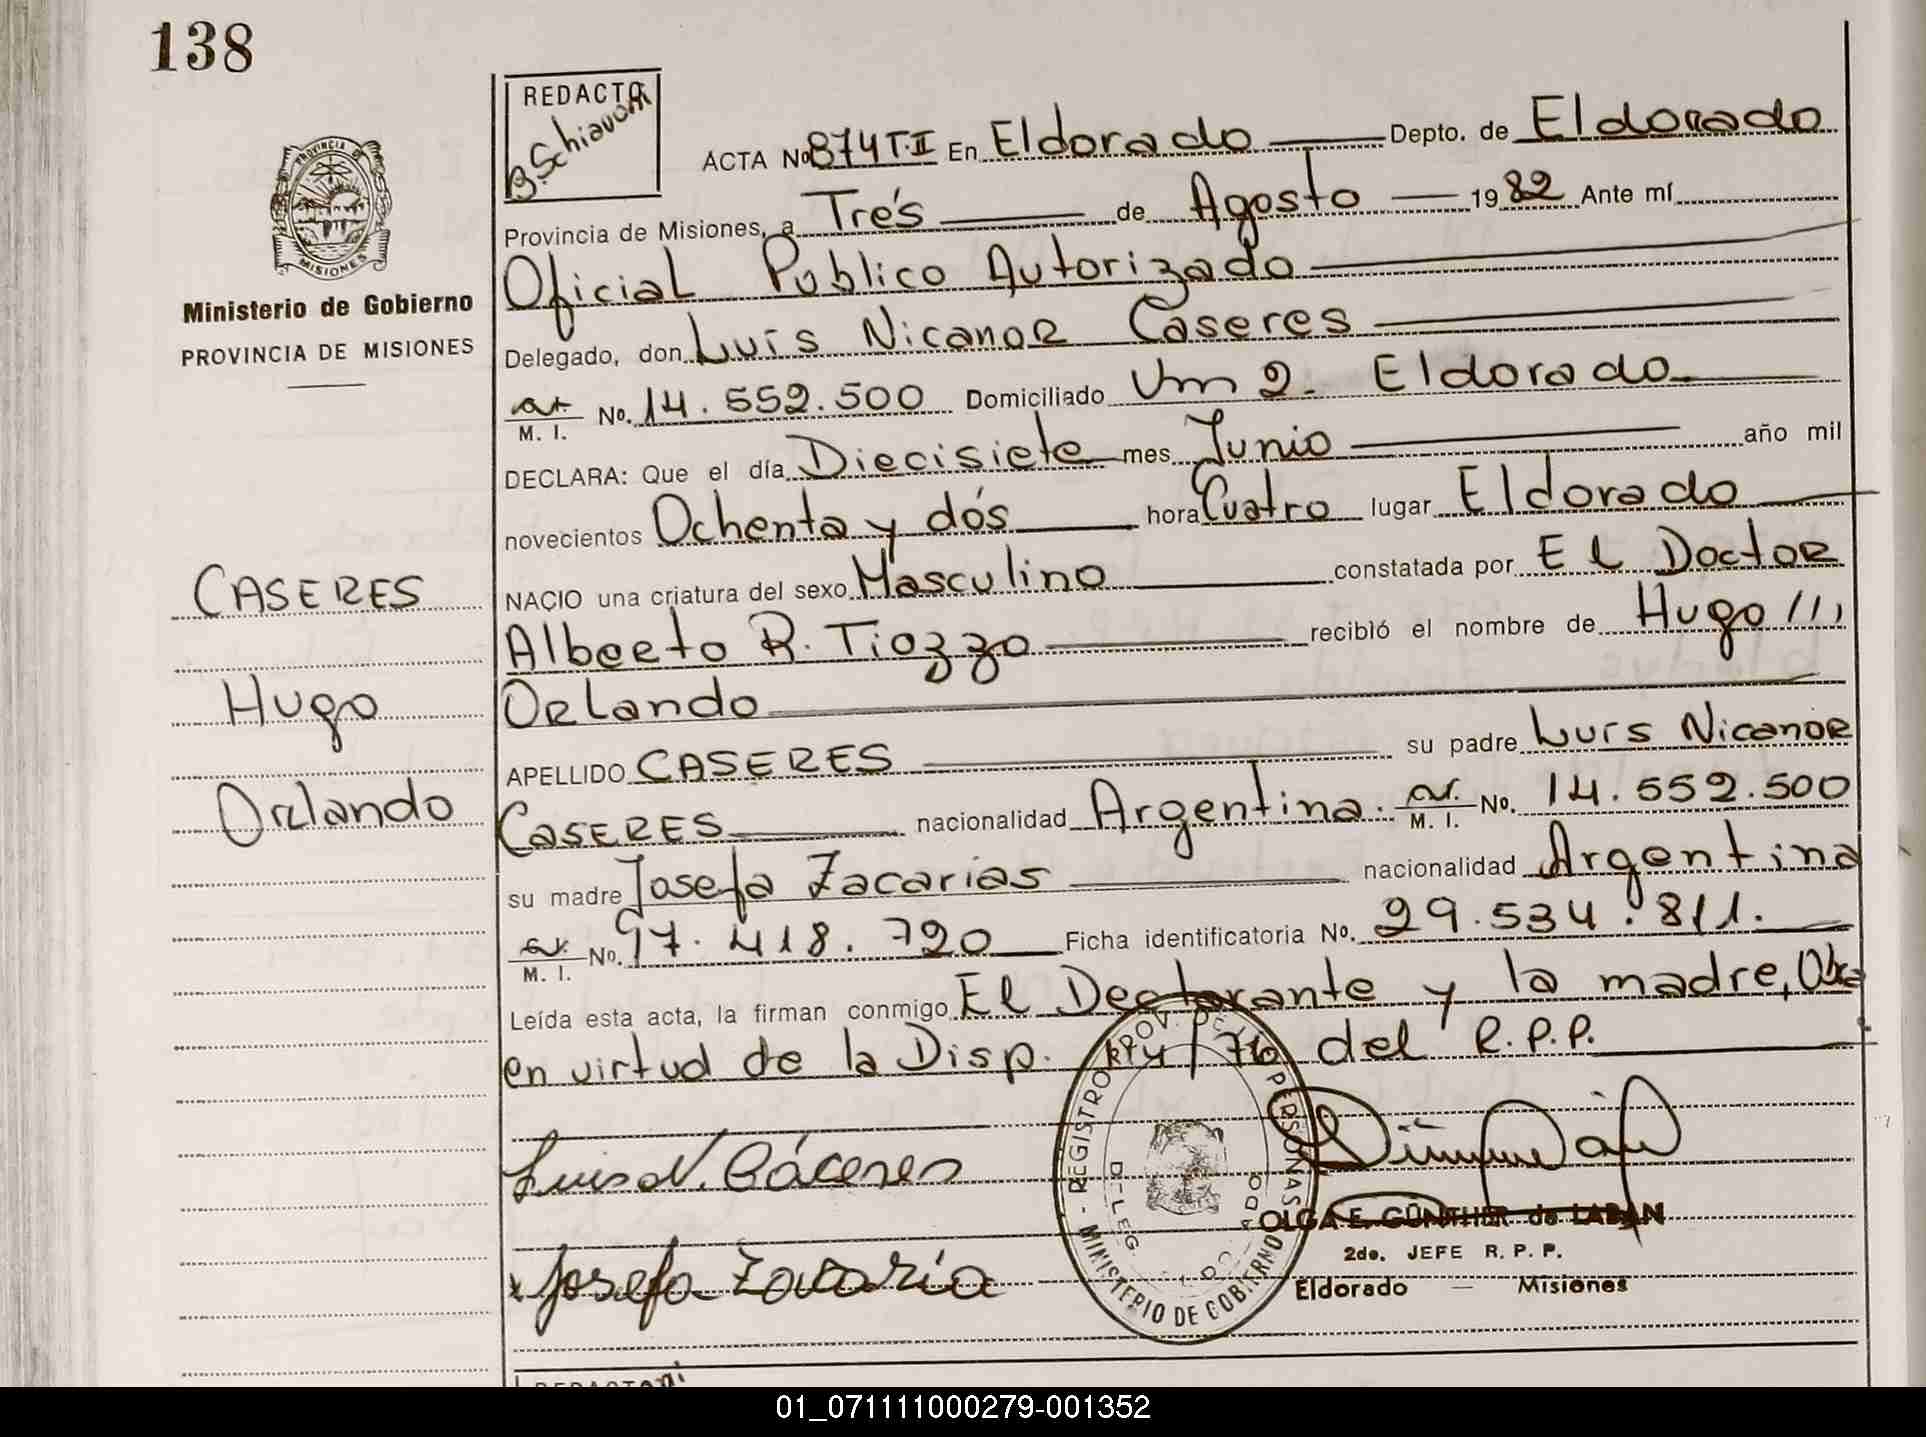 138
REDACTO
B. Schiavoni
PROVINCIA DE
MISIONES
Ministerio de Gobierno
PROVINCIA DE MISIONES
ACTA No 874 T.II En Eldorado Depto. de Eldorado
Provincia de Misiones, a Tres de Agosto 1982 Ante mí
Oficial Público Autorizado
Delegado, don Luis Nicanor Caseres
M. I. No. 14.552.500 Domiciliado Km 2. Eldorado
DECLARA: Que el día Diecisiete mes Junio año mil
novecientos Ochenta y dós hora Cuatro lugar Eldorado
NACIO una criatura del sexo Masculino constatada por El Doctor
Alberto R. Tiozzo recibió el nombre de Hugo
Orlando
APELLIDO CASERES su padre Luis Nicanor
CASERES nacionalidad Argentina. M. I. No. 14.552.500
su madre Josefa Zacarias nacionalidad Argentina
M. I. No. 17.418.720 Ficha identificatoria No. 29.534.811.
Leída esta acta, la firman conmigo El Declarante y la madre,
en virtud de la Disp. /76 del R.P.P.
CASERES
Hugo
Orlando
Luis N. Cáceres
Josefa Zacaria
REGISTRO PROV. DE LAS PERSONAS
MINISTERIO DE GOBIERNO
DELEG.
OLGA E. GÜNTHER de LABAN
2do. JEFE R. P. P.
Eldorado — Misiones
01_071111000279-001352